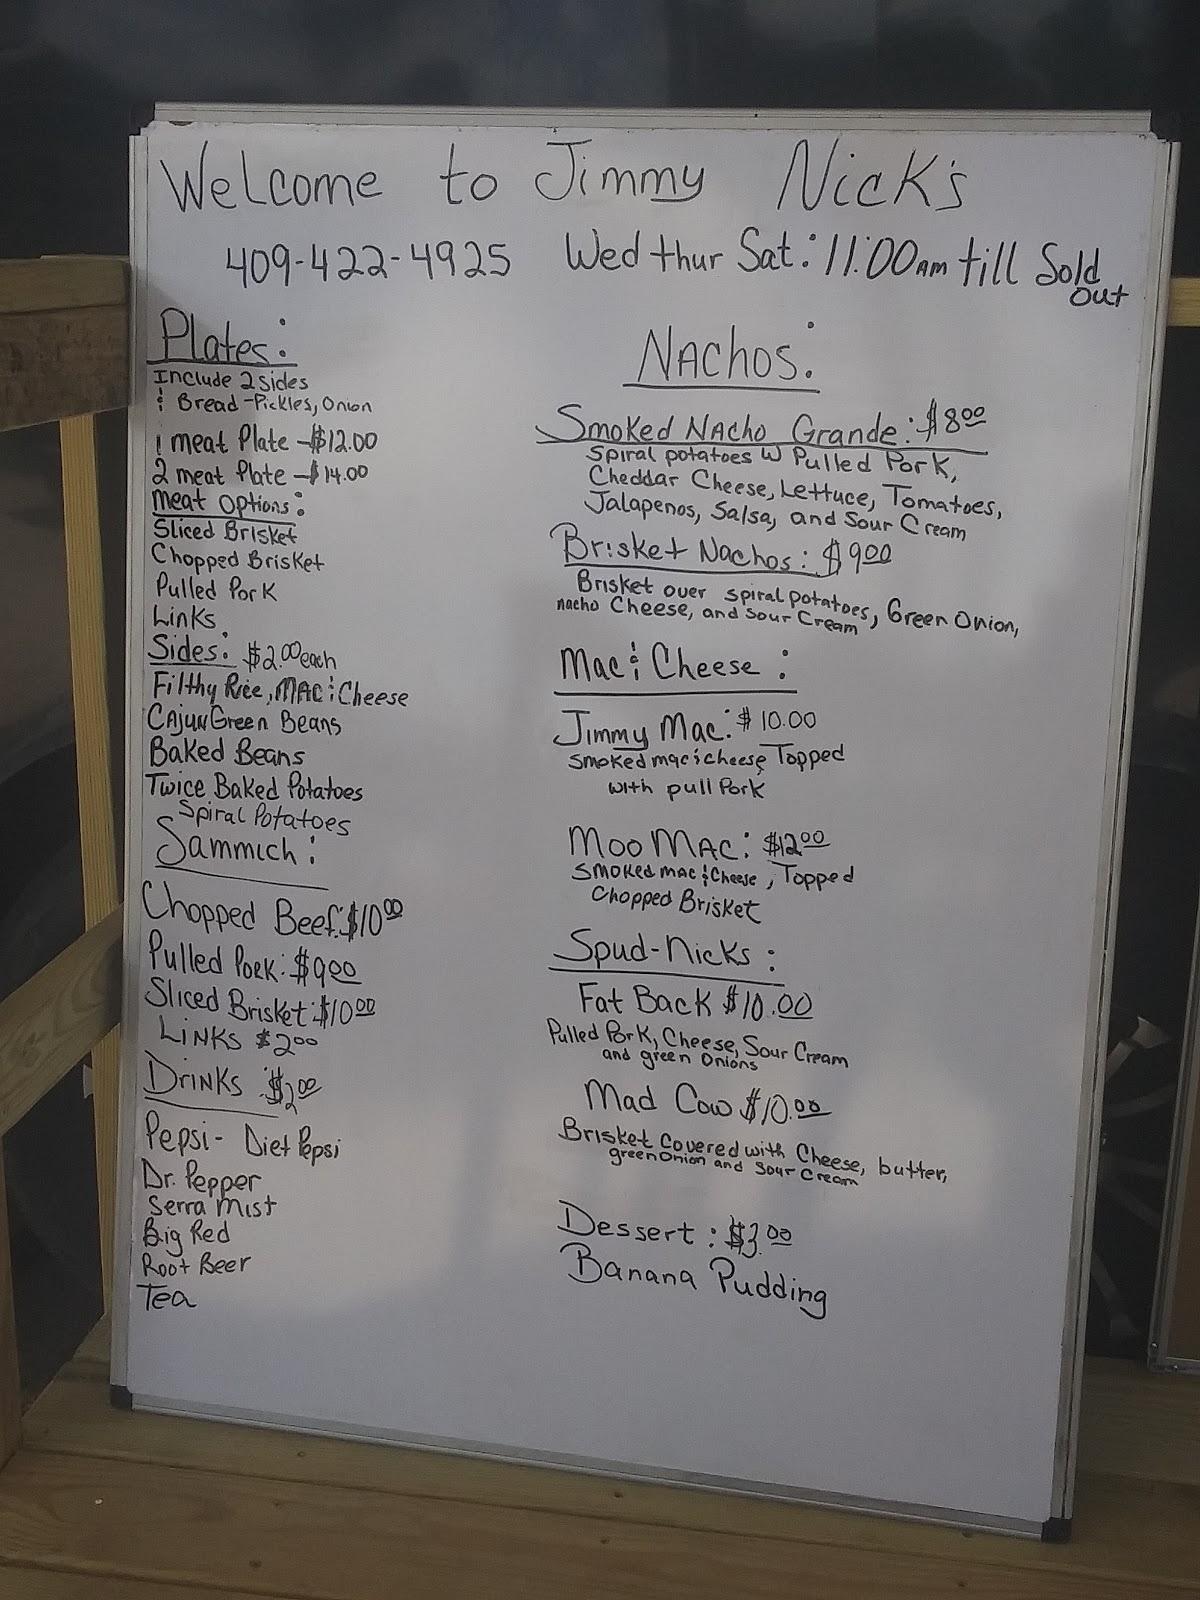 Welcome to Jimmy Nick's
409-422-4925 Wed thur Sat: 11:00am till Sold
Out
Plates:
Include 2 sides
& Bread-Pickles, Onion
1 meat Plate - $12.00
2 meat Plate - $14.00
Meat Options:
Sliced Brisket
Chopped Brisket
Pulled Pork
Links
Sides: $2.00 each
Filthy Rice, MAC & Cheese
Cajun Green Beans
Baked Beans
Twice Baked Potatoes
Spiral Potatoes
Sammich:
Chopped Beef: $10.00
Pulled Pork: $9.00
Sliced Brisket: $10.00
Links $2.00
Drinks $2.00
Pepsi - Diet Pepsi
Dr. Pepper
Serra Mist
Big Red
Root Beer
Tea
Nachos:
Smoked Nacho Grande: $8.00
Spiral potatoes W Pulled Pork,
Cheddar Cheese, Lettuce, Tomatoes,
Jalapenos, Salsa, and Sour Cream
Brisket Nachos: $9.00
Brisket over spiral potatoes, Green Onion,
nacho Cheese, and Sour Cream
Mac & Cheese:
Jimmy Mac: $10.00
Smoked mac & cheese Topped
with pull Pork
Moo Mac: $12.00
Smoked mac & Cheese, Topped
Chopped Brisket
Spud-Nicks:
Fat Back $10.00
Pulled Pork, Cheese, Sour Cream
and green Onions
Mad Cow $10.00
Brisket Covered with Cheese, butter,
green Onion and Sour Cream
Dessert: $3.00
Banana Pudding